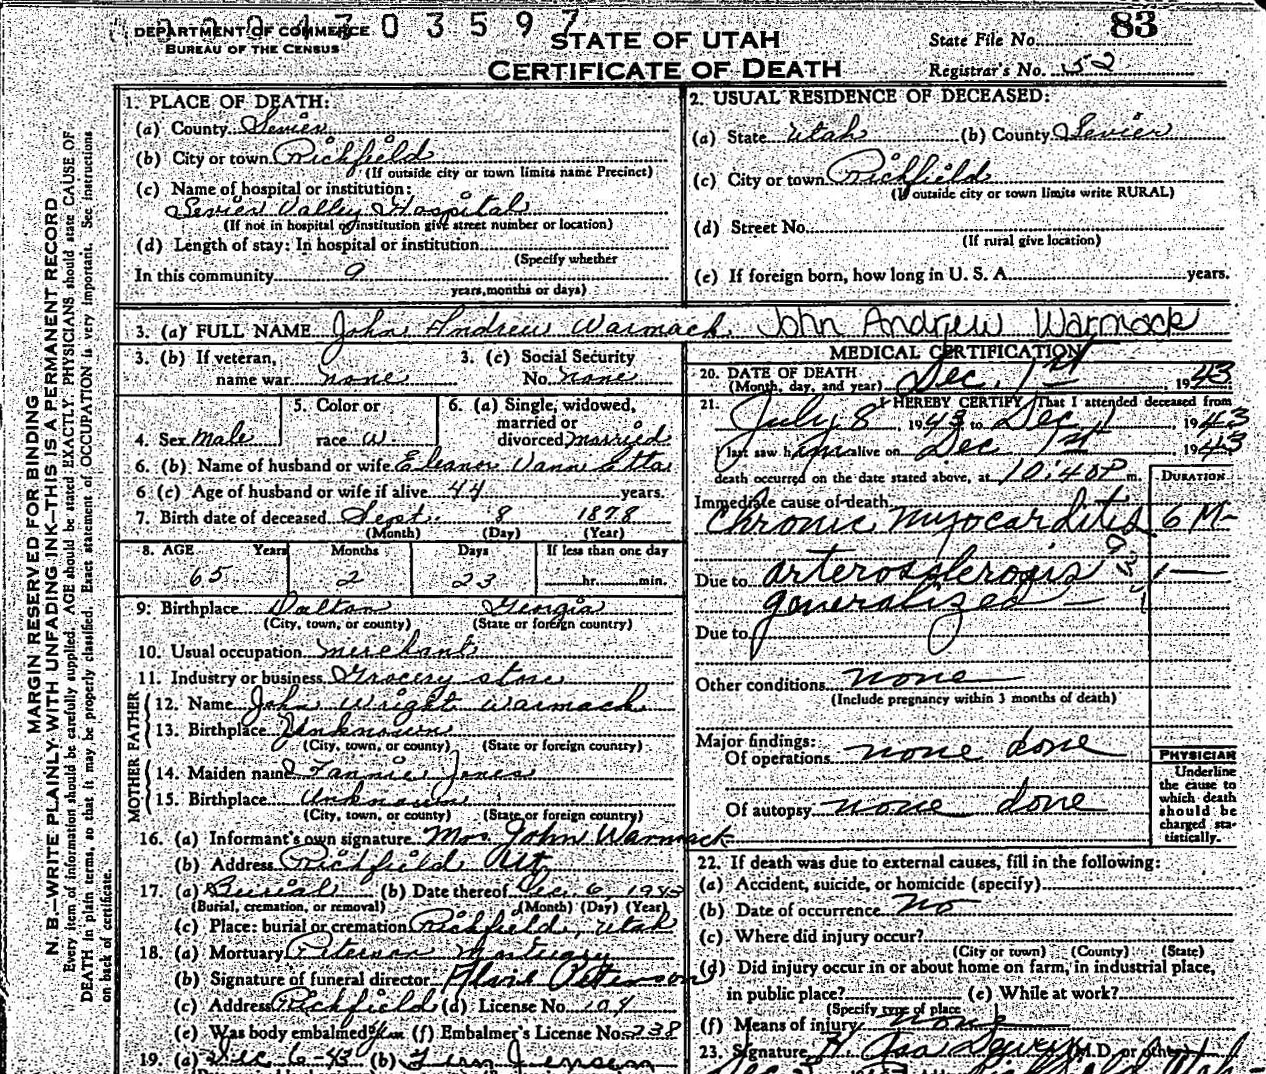 DEPARTMENT OF COMMERCE
BUREAU OF THE CENSUS
0 3 5 9 7
STATE OF UTAH
CERTIFICATE OF DEATH
State File No. 83
Registrar's No. 52
MARGIN RESERVED FOR BINDING
N. B.—WRITE PLAINLY WITH UNFADING INK—THIS IS A PERMANENT RECORD
Every item of information should be carefully supplied. AGE should be stated EXACTLY. PHYSICIANS should state CAUSE OF
DEATH in plain terms, so that it may be properly classified. Exact statement of OCCUPATION is very important. See instructions
on back of certificate.
1. PLACE OF DEATH:
(a) County Sevier
(b) City or town Richfield
(If outside city or town limits name Precinct)
(c) Name of hospital or institution:
Sevier Valley Hospital
(If not in hospital or institution give street number or location)
(d) Length of stay: In hospital or institution
(Specify whether
In this community 9
years, months or days)
2. USUAL RESIDENCE OF DECEASED:
(a) State Utah (b) County Sevier
(c) City or town Richfield
(If outside city or town limits write RURAL)
(d) Street No.
(If rural give location)
(e) If foreign born, how long in U. S. A. years.
3. (a) FULL NAME John Andrew Warmack. John Andrew Warmack
3. (b) If veteran,
name war none
3. (c) Social Security
No. none
4. Sex male
5. Color or
race W.
6. (a) Single, widowed,
married or
divorced married
6. (b) Name of husband or wife Eleanor Vann Etta
6 (c) Age of husband or wife if alive 44 years.
7. Birth date of deceased Sept. 8 1878
(Month) (Day) (Year)
8. AGE Years Months Days If less than one day
65 2 23 hr. min.
9. Birthplace Dalton Georgia
(City, town, or county) (State or foreign country)
10. Usual occupation merchant
11. Industry or business Grocery store
FATHER
12. Name John Wright Warmack
13. Birthplace Unknown
(City, town, or county) (State or foreign country)
MOTHER
14. Maiden name Fannie Jones
15. Birthplace Unknown
(City, town, or county) (State or foreign country)
16. (a) Informant's own signature Mrs. John Warmack
(b) Address Richfield Ut.
17. (a) Burial (b) Date thereof Dec. 6 1943
(Burial, cremation, or removal) (Month) (Day) (Year)
(c) Place: burial or cremation Richfield, Utah
18. (a) Mortuary Peterson Mortuary
(b) Signature of funeral director Peterson
(c) Address Richfield (d) License No. 104
(e) Was body embalmed? Yes (f) Embalmer's License No. 238
19. (a) Dec 6-43 (b) Fern Jensen
MEDICAL CERTIFICATION
20. DATE OF DEATH
(Month, day, and year) Dec. 1st, 1943
21. I HEREBY CERTIFY That I attended deceased from
July 8, 1943 to Dec 1, 1943
I last saw him alive on Dec 1st 1943
death occurred on the date stated above, at 10:40 P. m.
DURATION
Immediate cause of death
Chronic myocarditis 6 M-
Due to arterosclerosis
generalized —
Due to
Other conditions none
(Include pregnancy within 3 months of death)
Major findings:
Of operations none done
Of autopsy none done
PHYSICIAN
Underline
the cause to
which death
should be
charged sta-
tistically.
22. If death was due to external causes, fill in the following:
(a) Accident, suicide, or homicide (specify)
(b) Date of occurrence no
(c) Where did injury occur?
(City or town) (County) (State)
(d) Did injury occur in or about home on farm, in industrial place,
in public place? (e) While at work?
(Specify type of place
(f) Means of injury none
23. Signature (M.D. or other)